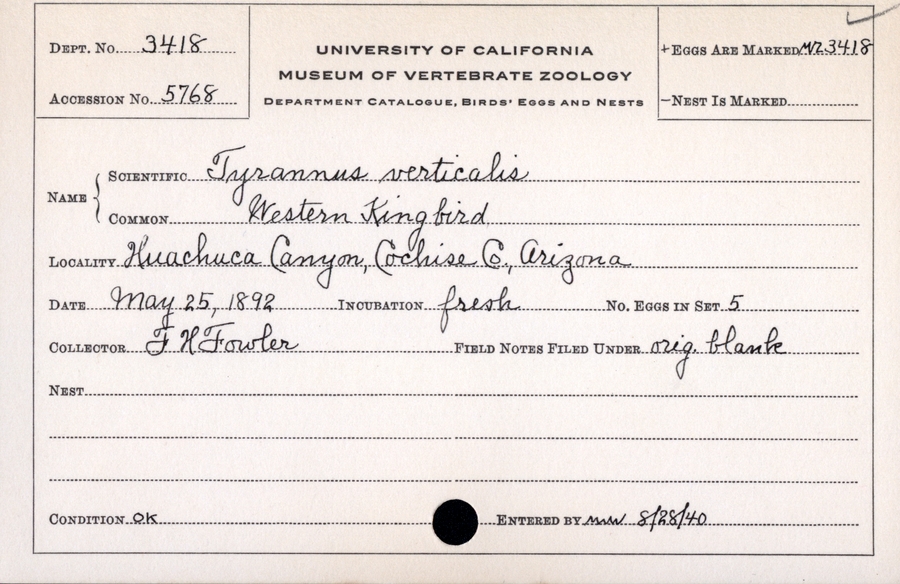 DEPT. NO. 3418
ACCESSION NO. 5768
UNIVERSITY OF CALIFORNIA
MUSEUM OF VERTEBRATE ZOOLOGY
DEPARTMENT CATALOGUE, BIRDS' EGGS AND NESTS
+EGGS ARE MARKED MVZ3418
-NEST IS MARKED
NAME
SCIENTIFIC Tyrannus verticalis
COMMON Western Kingbird
LOCALITY Huachuca Canyon, Cochise Co., Arizona
DATE May 25, 1892 INCUBATION fresh NO. EGGS IN SET 5
COLLECTOR F H Fowler FIELD NOTES FILED UNDER orig. blank
NEST
CONDITION OK ENTERED BY 8/28/40